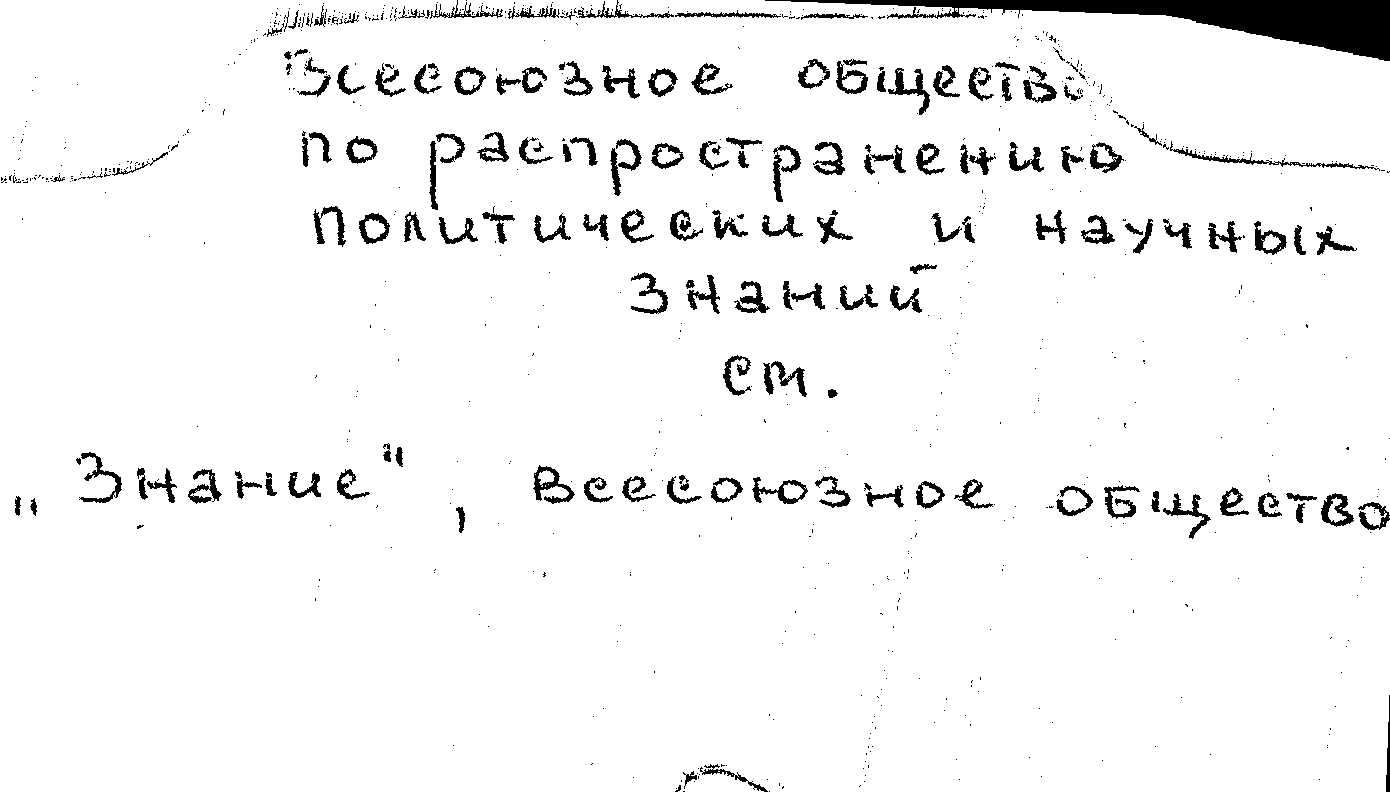 Всесоюзное общество
по распространению
политических и научных
знаний
см.
„Знание", Всесоюзное общество